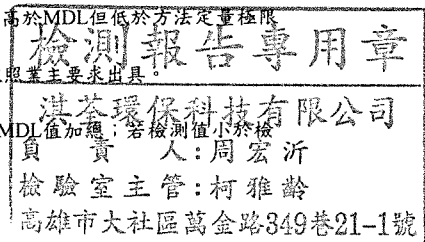 高於MDL但低於方法定量極限
檢測報告專用章
照業主要求出具。
淇荃環保科技有限公司
MDL值加總；若檢測值小於檢
負責人：周宏沂
檢驗室主管：柯雅齡
高雄市大社區萬金路349巷21-1號